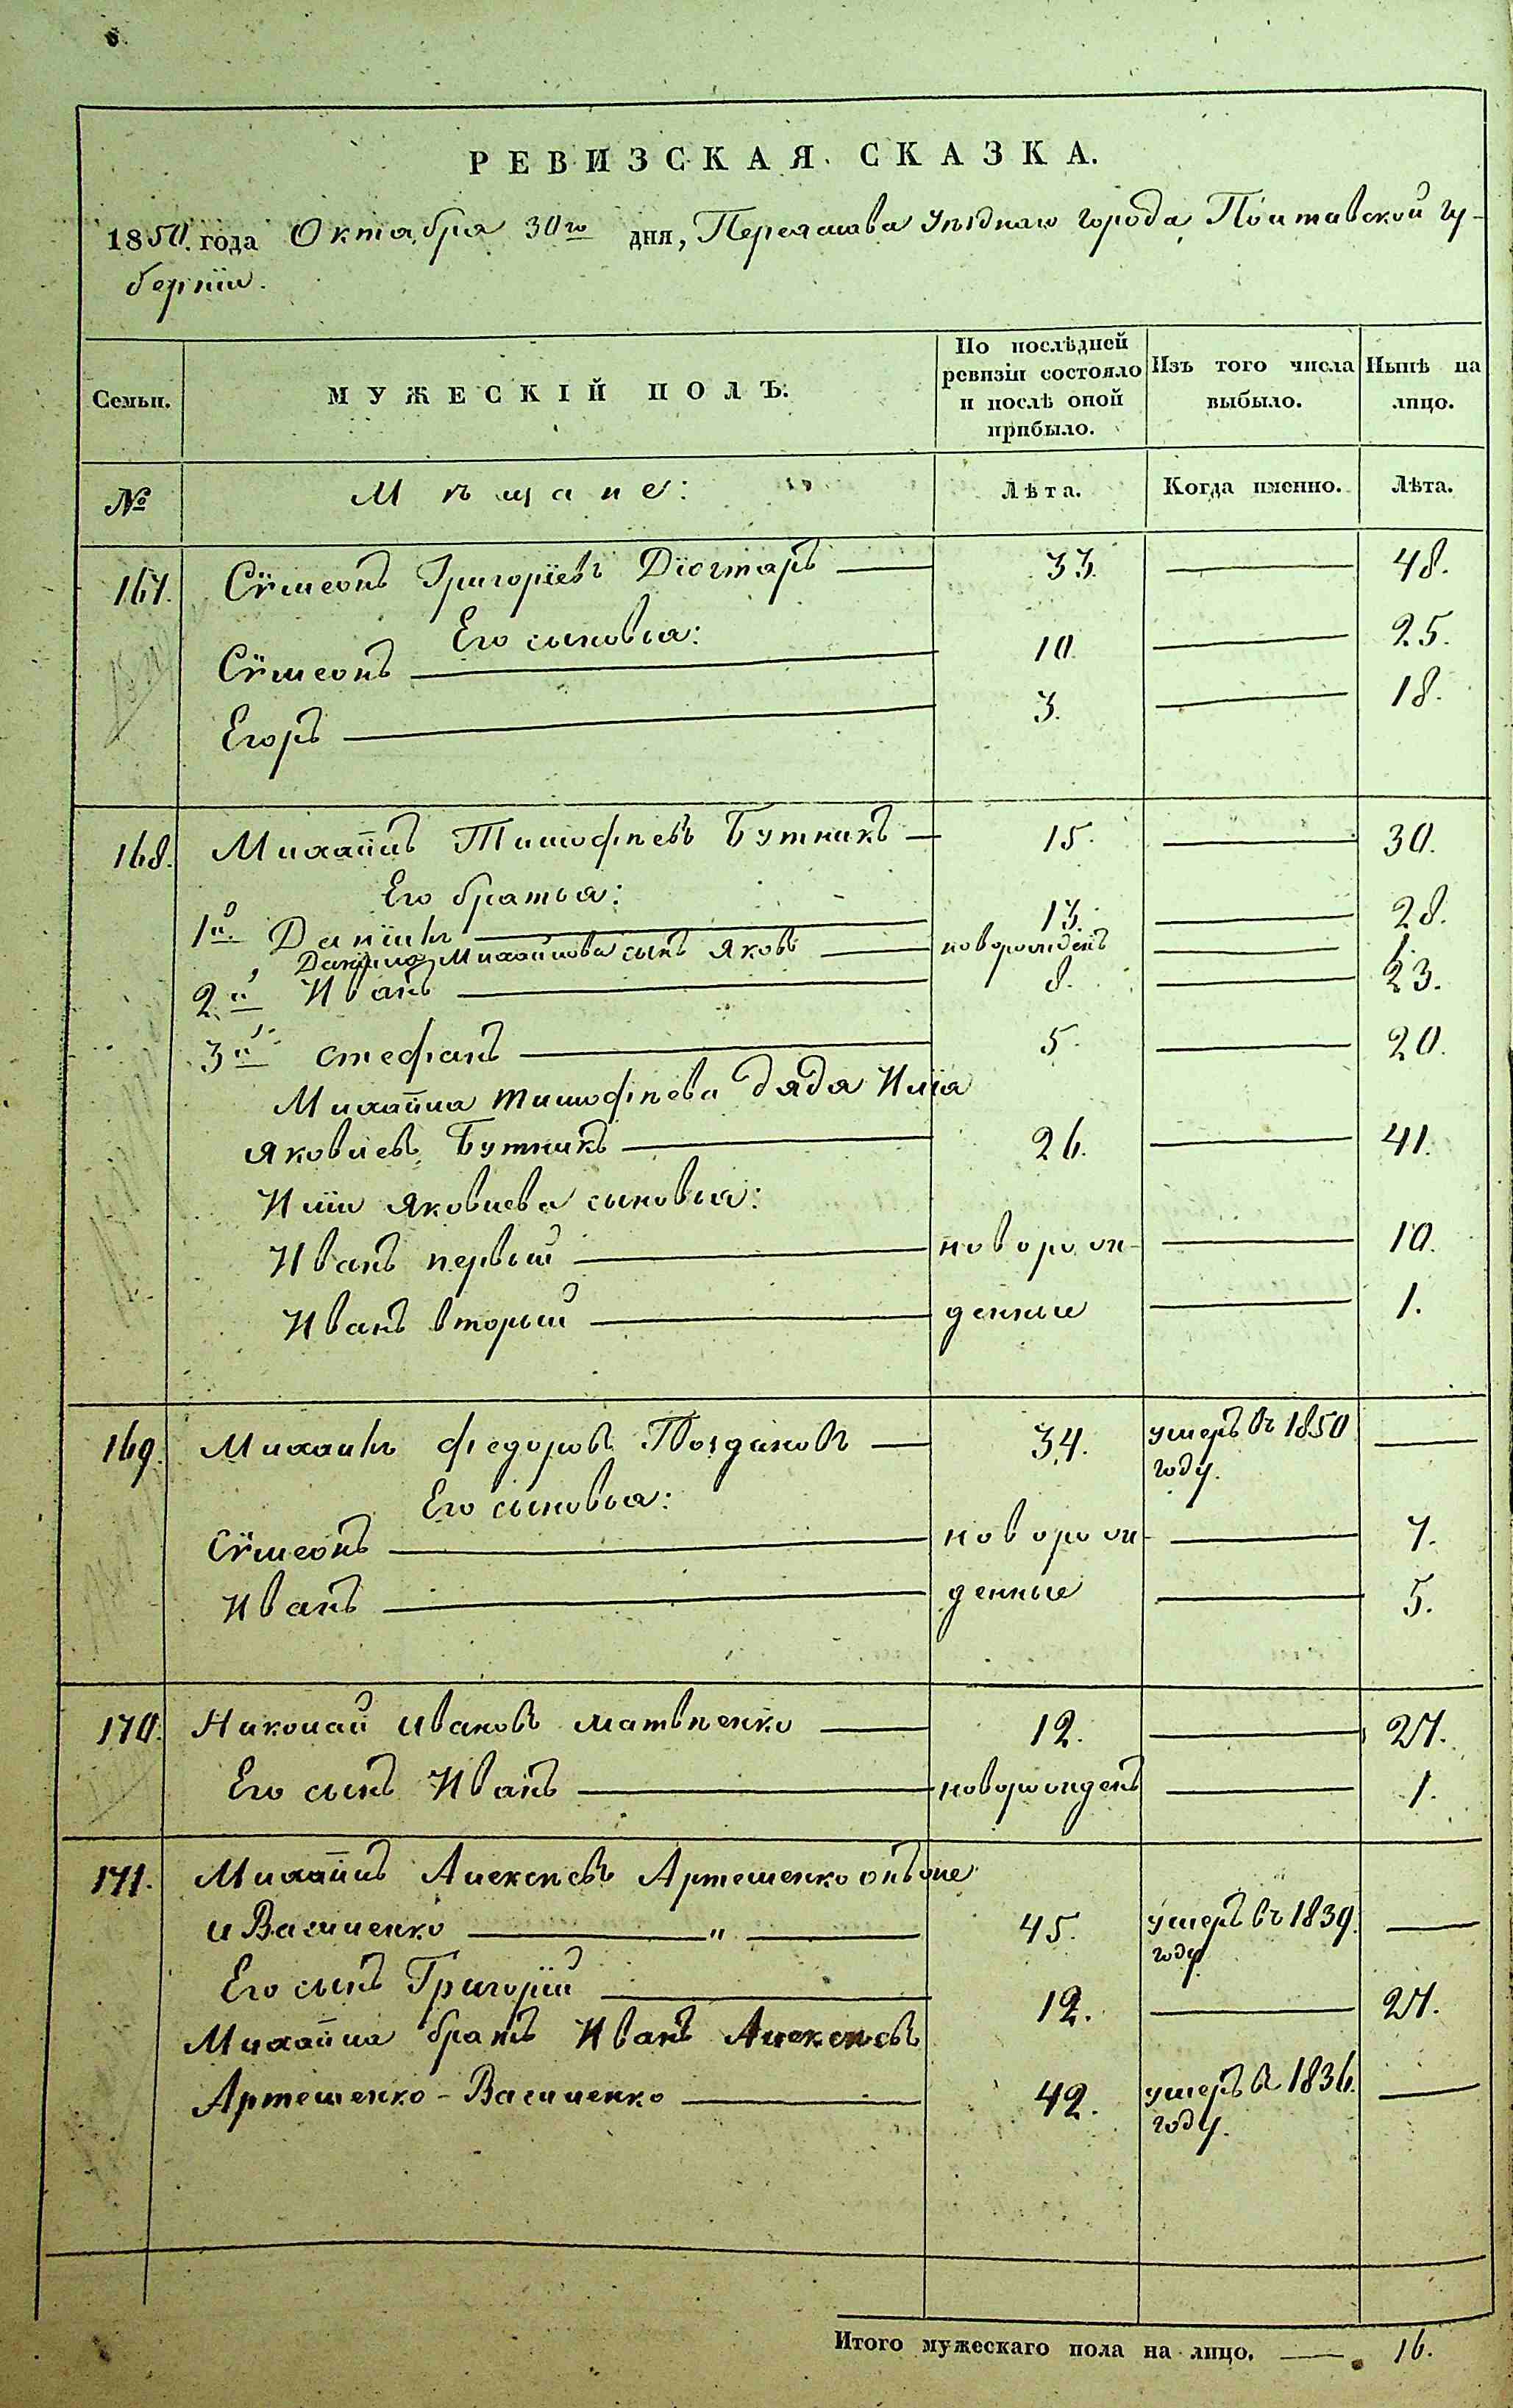 РЕВИЗСКАЯ СКАЗКА.
1850. года Октября 30го дня, Переяслава уѣзднаго города, Полтавской гу-
берніи.
Семьи. МУЖЕСКІЙ ПОЛЪ. По послѣдней ревизіи состояло и послѣ оной прибыло. Изъ того числа выбыло. Нынѣ на лицо.
№ Мѣщане: Лѣта. Когда именно. Лѣта.
167. Сѵмеонъ Григоріевъ Дігтяръ 33. 48.
Его сыновья:
Сѵмеонъ 10. 25.
Егоръ 3. 18.
168. Михаилъ Тимофѣевъ Бутникъ 15. 30.
Его братья:
1й. Даніилъ 13. 28.
Данила Михайлова сынъ Яковъ новорожденъ 1.
2й Иванъ 8. 23.
3й Стефанъ 5. 20.
Михаила Тимофѣева дядя Илія
Яковлевъ Бутникъ 26. 41.
Иліи Яковлева сыновья:
Иванъ первый новорож- 10.
Иванъ вторый денные 1.
169. Михаилъ Федоровъ 34. умеръ въ 1850
году.
Его сыновья:
Сѵмеонъ новорож- 7.
Иванъ денные 5.
170. Николай Ивановъ Матвѣенко 12. 27.
Его сынъ Иванъ новорожденъ 1.
171. Михаилъ Алексѣевъ Артеменко онъ же
и Василенко " 45. умеръ въ 1839.
году.
Его сынъ Григорій 12. 27.
Михаила братъ Иванъ Алексѣевъ
Артеменко-Василенко 42. умеръ въ 1836.
году.
Итого мужескаго пола на лицо. 16.